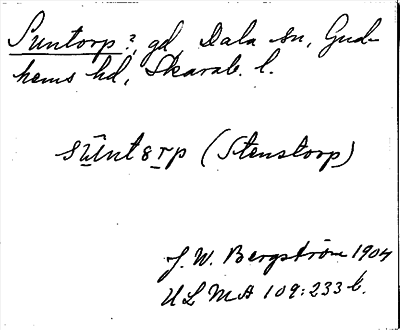 Suntorp?, gd, Dala sn, Gud-
hems hd, Skarab. l.
sūnt8rp (Stenstorp)
J. W. Bergström 1904
ULMA 109:233 b.